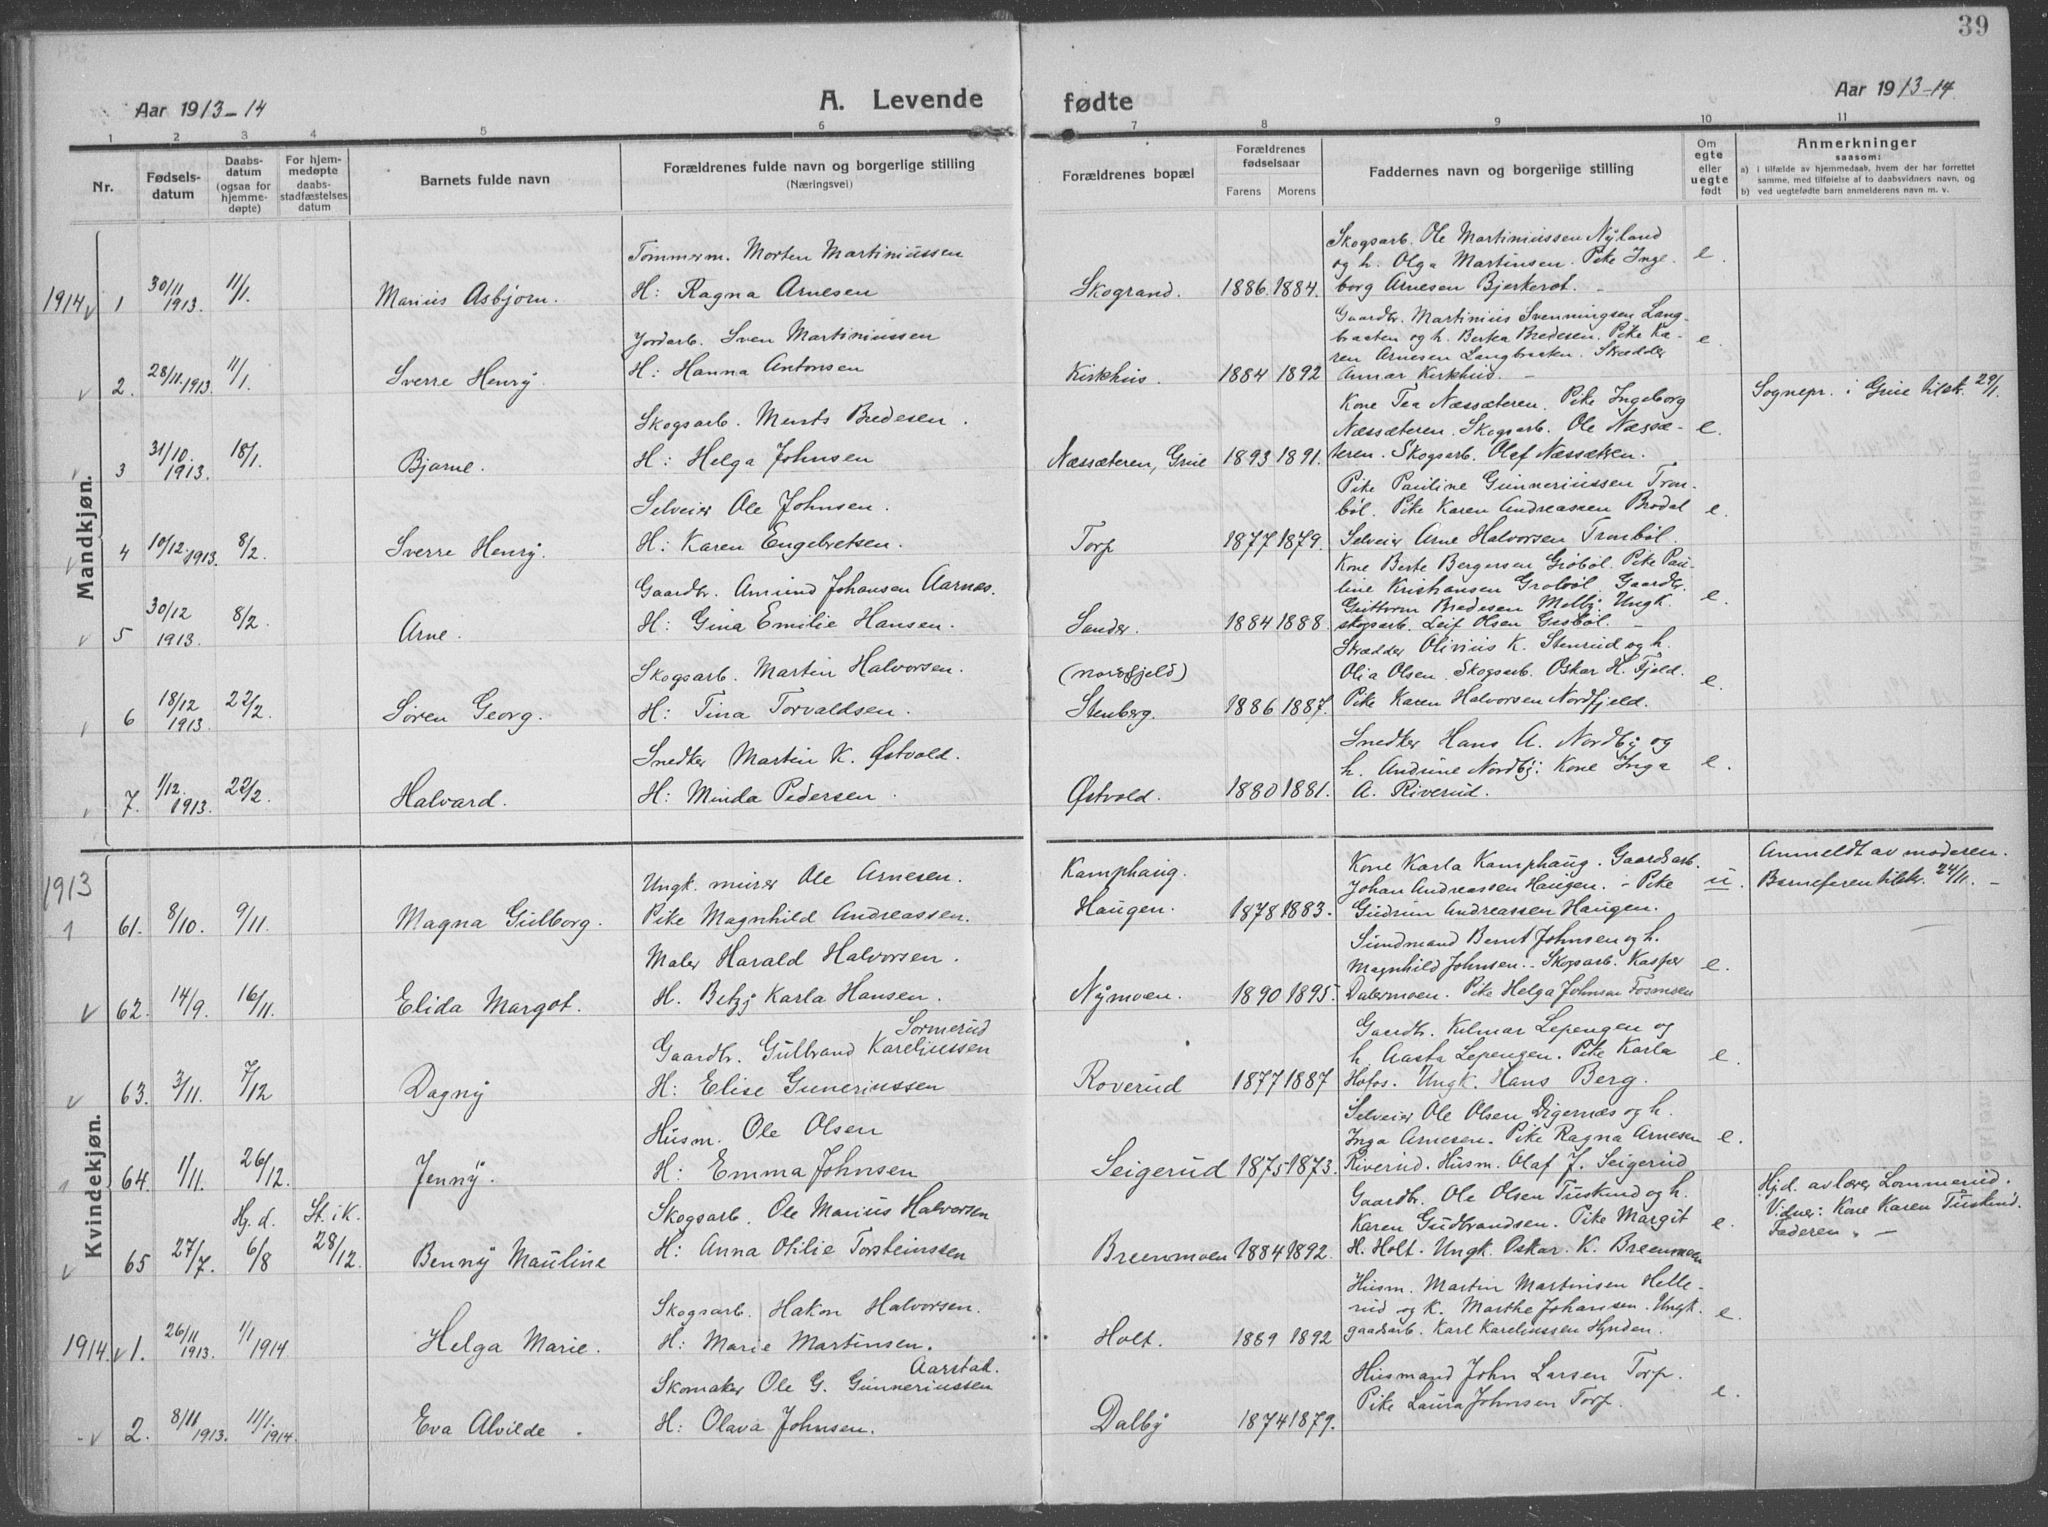 39
Aar 1913-14
A. Levende fødte
Aar 1913-14.
1 2 3 4 5 6 7 8 9 10 11
Nr.
Fødsels-
datum
Daabs-
datum
(ogsaa for
hjemme-
døpte)
For hjem-
medøpte
daabs-
stadfæstelses
datum
Barnets fulde navn
Forældrenes fulde navn og borgerlige stilling
(Næringsvei)
Forældrenes bopæl
Forældrenes
fødselsaar
Farens Morens
Faddernes navn og borgerlige stilling
Om
egte
eller
uegte
født
Anmerkninger
saasom:
a) i tilfælde av hjemmedaab, hvem der har forrettet
samme, med tilføielse af to daabsvidners navn, og
b) ved uegtefødte barn anmelderens navn m. v.
Mandkjøn.
1914 v 1 30/11 1913. 11/1. Marius Asbjørn.
Tømmerm. Morten Martiniussen
H: Ragna Arnesen
Skogrand. 1886. 1884.
Skogsarb. Ole Martiniussen Nyland
og h. Olga Martinsen. Pike Inge-
borg Arnesen Bjerkerot. -
e.
v 2. 28/11. 1913. 11/1. Sverre Henry.
Jordarb. Sven Martiniussen
H: Hanna Antonsen
Kirkhus. 1884 1892
Gaardbr. Martinius Svenningsen Lang-
braaten og h. Berthea Bredesen. Pike Ka-
ren Arnesen Langbraaten. Skrædder
Annar Kirkhus. -
e.
3 31/10. 1913. 18/1. Bjarne.
Skogsarb. Ments Bredesen.
H: Helga Johnsen
Næssæteren, Grue 1893 1891.
Kone Tea Næssæteren. Pike Ingeborg
Næssæteren. Skogsarb. Ole Næssæ-
teren. Skogsarb. Olaf Næssæteren.
e.
Sognepr. i Grue tilskr. 29/1.
v 4 10/12. 1913. 8/2. Sverre Henry.
Selveier Ole Johnsen.
H: Karen Engebretsen.
Torp 1877 1879.
Pike Pauline Gunneriussen Tron-
bøl. Pike Karen Andreassen Brodal
Selveier Arne Halvorsen Tronbøl.
e.
v 5 30/12 1913. 8/2. Arne.
Gaardbr. Amund Johansen Aarnæs.
H: Gina Emilie Hansen.
Sander. 1884 1888.
Kone Berte Bergersen Grøbøl. Pike Pau-
line Kristiansen Grøbøl. Gaardbr.
Guttorm Bredesen Melby. Ungk.
skogsarb. Leif Olsen Gusbøl. -
e.
6 18/12 1913. 22/2. Søren Georg.
Skogsarb. Martin Halvorsen.
H: Tina Torvaldsen.
(Nordfjeld)
Stenberg. 1886 1887.
Skrædder Olivius K. Stenrud og h.
Olia Olsen. Skogsarb. Oskar H. Fjeld.
Pike Karen Halvorsen Nordfjeld.
e.
v 7. 1/12. 1913. 22/2. Halvard.
Snedker Martin K. Østvold.
H: Minda Pedersen.
Østvold. 1880 1881.
Snedker Hans A. Nordby og
h. Andrine Nordby. Kone Inga
A. Riverud.
e.
Kvindekjøn.
1913
61. 8/10. 9/11. Magna Gulborg.
Ungk. murer Ole Arnesen.
Pike Magnhild Andreassen.
Kamphaug.
Haugen. 1878 1883.
Kone Karla Kamphaug. Gaardsarb.
Johan Andreassen Haugen. - Pike
Gudrun Andreassen Haugen.
u.
Anmeldt av moderen.
Barnefaren tilskr. 24/11. -
v 62. 14/9. 16/11. Elida Margot.
Maler Harald Halvorsen.
H. Betzy Karla Hansen.
Nymoen. 1890 1895.
Sundmand Bernt Johnsen og h.
Magnhild Johnsen. - Skogsarb. Kasper
Dalermoen. Pike Helga Johnsen Fosmoen
e.
v 63. 3/11. 7/12 Dagny
Sormerud
Gaardbr. Gulbrand Kareliussen
H: Elise Guneriussen
Roverud 1877 1887
Gaardbr. Kilmar Lepengen og
h. Aasta Lepengen. Pike Karla
Hofos. Ungk. Hans Berg.
e.
64. 1/11. 26/12. Jenny.
Husm. Ole Olsen
H: Emma Johnsen
Seigerud 1875 1873.
Selveier Ole Olsen Digernæs og h.
Inga Arnesen. Pike Ragna Arnesen
Riverud. Husm. Olaf J. Seigerud
e.
v 65 27/7. Hj. d. 6/8 St. i K. 28/12. Benny Mauline
Skogsarb. Ole Marius Halvorsen
H: Anna Otilie Torsteinssen
Breenmoen 1884 1892.
Gaardbr. Ole Olsen Tuskind og h.
Karen Gudbrandsen. Pike Margit
H. Holt. Ungk. Oskar. K. Breenmoen
e.
Hj.d. av lærer Lommerud.
Vidner: Kone Karen Tuskind.
Faderen " -
1914. v 1. 26/11 1913. 1/1 1914 Helga Marie.
Skogsarb. Hakon Halvorsen.
H: Marie Martinsen.
Holt. 1889 1892
Husm. Martin Martinsen Helle-
rud og K. Marthe Johansen. Ungk.
gaardsarb. Karl Kareliussen Hynden.
e.
v 2. 8/11 1913. 11/1. 1914. Eva Alvilde.
Aarstad.
Skomaker Ole G. Gunneriussen
H: Olava Johnsen.
Dalby 1874 1879.
Husmand John Larsen Torp.
Pike Laura Johnsen Torp.
e.